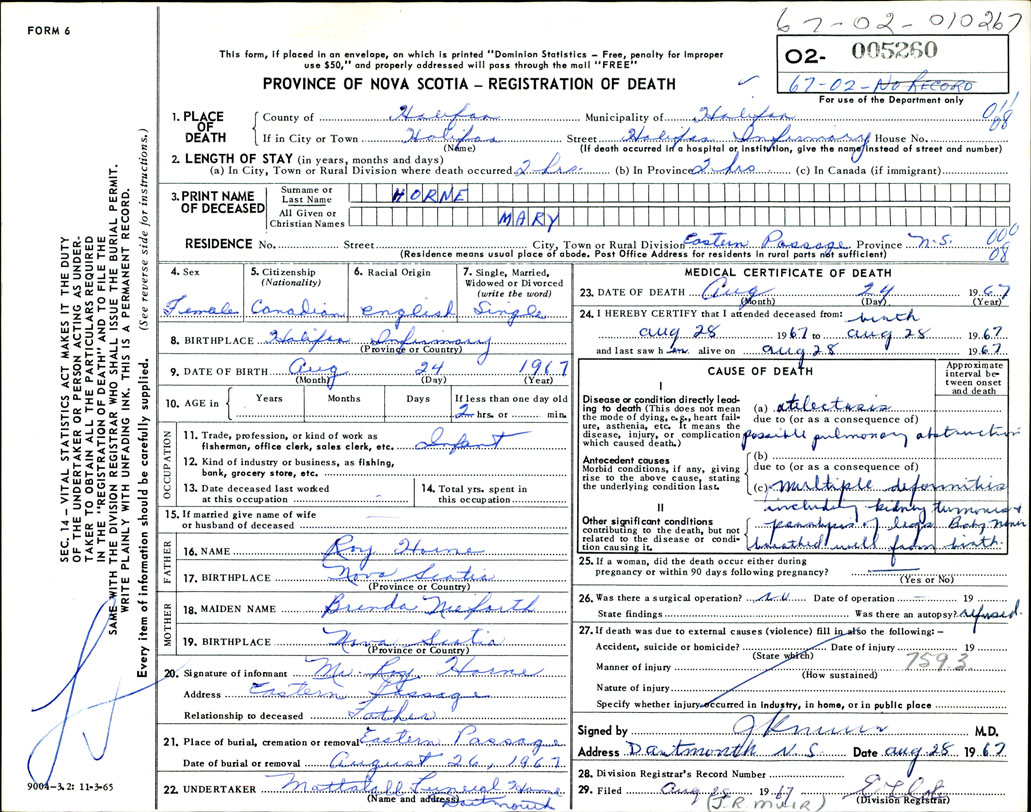 FORM 6
67-02-010267
02- 005260
67-02-No RECORD
For use of the Department only
This form, if placed in an envelope, on which is printed "Dominion Statistics – Free, penalty for improper
use $50," and properly addressed will pass through the mail "FREE"
PROVINCE OF NOVA SCOTIA – REGISTRATION OF DEATH
SEC. 14 – VITAL STATISTICS ACT MAKES IT THE DUTY
OF THE UNDERTAKER OR PERSON ACTING AS UNDER-
TAKER TO OBTAIN ALL THE PARTICULARS REQUIRED
IN THE "REGISTRATION OF DEATH" AND TO FILE THE
SAME WITH THE DIVISION REGISTRAR WHO SHALL ISSUE THE BURIAL PERMIT.
WRITE PLAINLY WITH UNFADING INK. THIS IS A PERMANENT RECORD.
Every item of information should be carefully supplied. (See reverse side for instructions.)
1. PLACE OF DEATH
County of Halifax Municipality of Halifax 011
08
If in City or Town Halifax Street Halifax Infirmary House No.
(Name) (If death occurred in a hospital or institution, give the name instead of street and number)
2. LENGTH OF STAY (in years, months and days)
(a) In City, Town or Rural Division where death occurred 2 hrs. (b) In Province 2 hrs (c) In Canada (if immigrant)
3. PRINT NAME OF DECEASED
Surname or Last Name HORNE
All Given or Christian Names MARY
RESIDENCE No. Street City, Town or Rural Division Eastern Passage Province N.S. 000
08
(Residence means usual place of abode. Post Office Address for residents in rural parts not sufficient)
4. Sex Female
5. Citizenship (Nationality) Canadian
6. Racial Origin English
7. Single, Married, Widowed or Divorced (write the word) Single
8. BIRTHPLACE Halifax Infirmary
(Province or Country)
9. DATE OF BIRTH Aug 24 1967
(Month) (Day) (Year)
10. AGE in Years Months Days If less than one day old
2 hrs. or min.
OCCUPATION
11. Trade, profession, or kind of work as
fisherman, office clerk, sales clerk, etc. Infant
12. Kind of industry or business, as fishing,
bank, grocery store, etc.
13. Date deceased last worked
at this occupation
14. Total yrs. spent in
this occupation
15. If married give name of wife
or husband of deceased
FATHER
16. NAME Roy Horne
17. BIRTHPLACE Nova Scotia
(Province or Country)
MOTHER
18. MAIDEN NAME Brenda Nieforth
19. BIRTHPLACE Nova Scotia
(Province or Country)
20. Signature of informant Mr. Roy Horne
Address Eastern Passage
Relationship to deceased Father
21. Place of burial, cremation or removal Eastern Passage
Date of burial or removal August 26, 1967
22. UNDERTAKER Mattatall Funeral Home
(Name and address) Dartmouth
9004-3.2: 11-3-65
MEDICAL CERTIFICATE OF DEATH
23. DATE OF DEATH Aug 24 1967
(Month) (Day) (Year)
24. I HEREBY CERTIFY that I attended deceased from: birth
aug 28 1967 to aug 28 1967.
and last saw h er alive on aug 28 1967.
CAUSE OF DEATH
Approximate interval between onset and death
I
Disease or condition directly lead-
ing to death (This does not mean
the mode of dying, e.g., heart fail-
ure, asthenia, etc. It means the
disease, injury, or complication
which caused death.)
(a) atelectasis
due to (or as a consequence of)
possible pulmonary obstruction
Antecedent causes
Morbid conditions, if any, giving
rise to the above cause, stating
the underlying condition last.
(b)
due to (or as a consequence of)
(c) multiple deformities
II
Other significant conditions
contributing to the death, but not
related to the disease or condi-
tion causing it.
including kidney tumours &
paralysis of legs. Baby never
breathed well from birth.
25. If a woman, did the death occur either during
pregnancy or within 90 days following pregnancy?
(Yes or No)
26. Was there a surgical operation? no Date of operation 19
State findings Was there an autopsy? refused.
27. If death was due to external causes (violence) fill in also the following: –
Accident, suicide or homicide? Date of injury 19
(State which)
Manner of injury 7593
(How sustained)
Nature of injury
Specify whether injury occurred in industry, in home, or in public place
Signed by M.D.
Address Dartmouth N.S Date aug 28 1967.
28. Division Registrar's Record Number
29. Filed Aug 28 1967
(Division Registrar)
(J.R. MUIR)